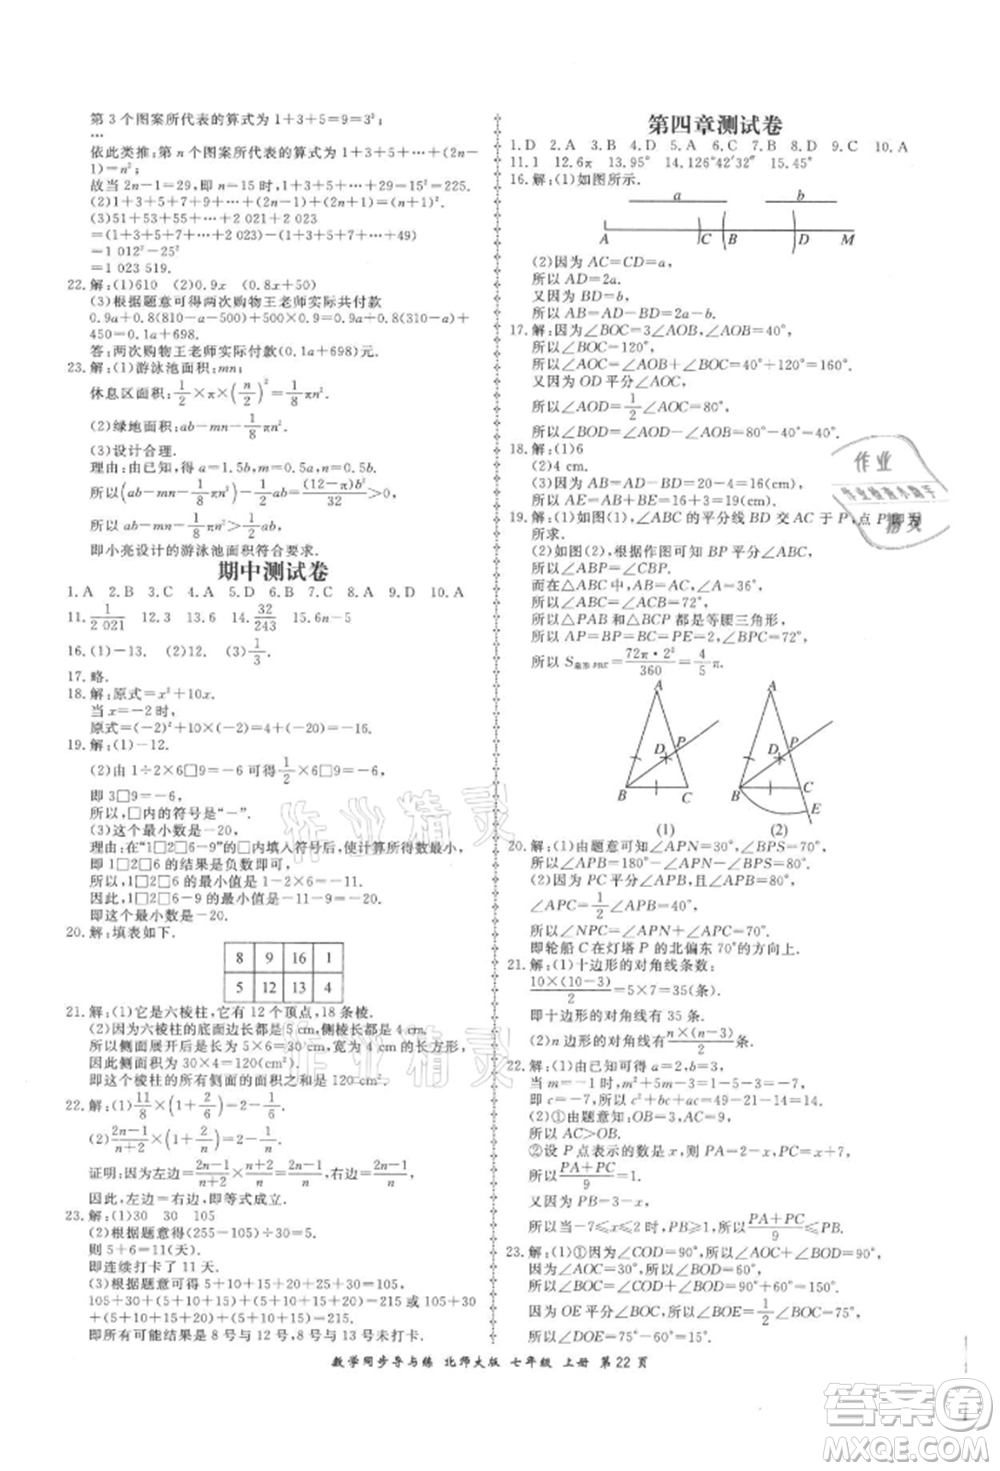 第3个图案所代表的算式为1+3+5=9=3²;
…
依此类推:第n个图案所代表的算式为1+3+5+…+(2n-
1)=n²;
故当2n-1=29,即n=15时,1+3+5+…+29=15²=225.
(2)1+3+5+7+9+…+(2n-1)+(2n+1)=(n+1)²
(3)51+53+55+…+2 021+2 023
=(1+3+5+…+2 023)-(1+3+5+…+49)
=1 012²-25²
=1 023 519.
22.解:(1)610 (2)0.9x (0.8x+50)
(3)根据题意可得两次购物王老师实际共付款
0.9a+0.8(810-a-500)+500×0.9=0.9a+0.8(310-a)+
450=0.1a+698.
答:两次购物王老师实际付款(0.1a+698)元.
23.解:(1)游泳池面积:mn;
休息区面积:1/2×π×(n/2)²=1/8πn²;
(2)绿地面积:ab-mn-1/8πn²;
(3)设计合理.
理由:由已知,得a=1.5b,m=0.5a,n=0.5b.
所以(ab-mn-1/8πn²)-1/2ab=(12-π)b²/32>0,
所以ab-mn-1/8πn²>1/2ab,
即小亮设计的游泳池面积符合要求.
期中测试卷
1.A 2.B 3.C 4.A 5.D 6.B 7.C 8.A 9.D 10.A
11.1/2 021 12.3 13.6 14.32/243 15.6n-5
16.(1)-13. (2)12. (3)1/3.
17.略.
18.解:原式=x²+10x.
当x=-2时,
原式=(-2)²+10×(-2)=4+(-20)=-16.
19.解:(1)-12.
(2)由1÷2×6□9=-6,可得1/2×6□9=-6,
即3□9=-6.
所以,□内的符号是“-”.
(3)这个最小数是-20,
理由:因为在“1□2□6”的□内填入符号后,使计算所得数最小,
即1□2□6的结果是负数即可.
所以1□2□6的最小值是1-2×6=-11,
因此,1□2□6-9的最小值是-11-9=-20,
即这个最小数是-20.
20.解:填表如下.
8 9 16 1
5 12 13 4
21.解:(1)它是六棱柱,它有12个顶点,18条棱.
(2)因为六棱柱的底面边长都是5 cm,侧棱长都是4 cm,
所以侧面展开后是长为5×6=30(cm),宽为4 cm的长方形,
因此面积为30×4=120(cm²).
即这个棱柱的所有侧面的面积之和是120 cm².
22.解:(1)11/8×(1+2/6)=2-1/6
(2)(2n-1)/(n+2)×(1+2/n)=2-1/n
证明:因为左边=(2n-1)/(n+2)×(n+2)/n=(2n-1)/n=2-1/n,
因此,左边=右边,即等式成立.
23.解:(1)30 30 105
(2)根据题意可得(255-105)÷30=5.
则5+6=11(天).
即连续打卡了11天.
(3)根据题意可得5+10+15+20+25+30=105,
105+30+30+(5+10+15+20)=215或105+
30+(5+10+15+20)+(5+10+15)=215或105+(5+10+15+20)+
(5+10+15+20)+(5+10)=215.
即所有可能结果是8号与12号,8号与13号,9号与13号未打卡.
第四章测试卷
1.D 2.A 3.B 4.A 5.D 6.C 7.B 8.D 9.C 10.A
11.1 12.6π 13.95° 14.126°42′32″ 15.45°
16.解:(1)如图所示.
a b
A C B D M
(2)因为AC=CD=a,
所以AD=2a.
又因为BD=b,
所以AB=AD-BD=2a-b.
17.解:因为∠BOC=3∠AOB,∠AOB=40°,
所以∠BOC=120°,
所以∠AOC=∠AOB+∠BOC=40°+120°=160°.
又因为OD平分∠AOC,
所以∠AOD=1/2∠AOC=80°,
所以∠BOD=∠AOD-∠AOB=80°-40°=40°.
18.解:(1)6
(2)4 cm.
所以AE=AB+BE=16+3=19(cm).
19.解:(1)如图(1),∠ABC的平分线BD交AC于P,点P
(2)因为根据作图可知BP平分∠ABC,
而在△ABC中,AB=AC,∠A=36°,
所以∠ABC=∠ACB=72°,
所以△PAB和△BCP都是等腰三角形,
所以AP=BP=BC=2,∠PBE=72°,
所以S扇形PBE=72π·2²/360=4/5π.
A D P B C
(1)
A D P B C E
(2)
20.解:(1)由题意可知∠APN=30°,∠BPS=70°,
所以∠APB=180°-∠APN-∠BPS=80°.
(2)因为PC平分∠APB,且∠APB=80°,
∠APC=1/2∠APB=40°,
所以∠NPC=∠APN+∠APC=70°,
即轮船C在灯塔P的北偏东70°的方向上.
21.解:(1)十边形的对角线条数:
10×(10-3)/2=35(条).
即十边形的对角线有35条.
(2)n边形的对角线有n×(n-3)/2(条).
22.解:(1)由已知可得a=2,b=3,c²=1,
当m=-7时,
即c=-7,所以c²+bc+ac=49-21-14=14.
(2)①由题意知:OB=3,AC=9,
所以AC>OB.
②设P点表示的数是x,则PA=2-x,PC=x+7,
所以(PA+PC)/9=1.
又因为
所以当-7≤x≤2时,PA≥1-9,(PA+PC)/9=1.
23.解:(1)①因为∠COD=90°,所以∠AOC+∠BOD=90°,
因为∠AOC=30°,所以∠BOD=60°,
所以∠BOC=∠COD+∠BOD=90°+60°=150°,
因为OE平分∠BOC,所以∠BOE=1/2∠BOC=75°,
所以∠DOE=∠BOE-∠BOD=75°-60°=15°.
数学同步导与练 北师大版 七年级 上册 第22页
作业精灵
作业精灵
答案圈
MXQE.COM